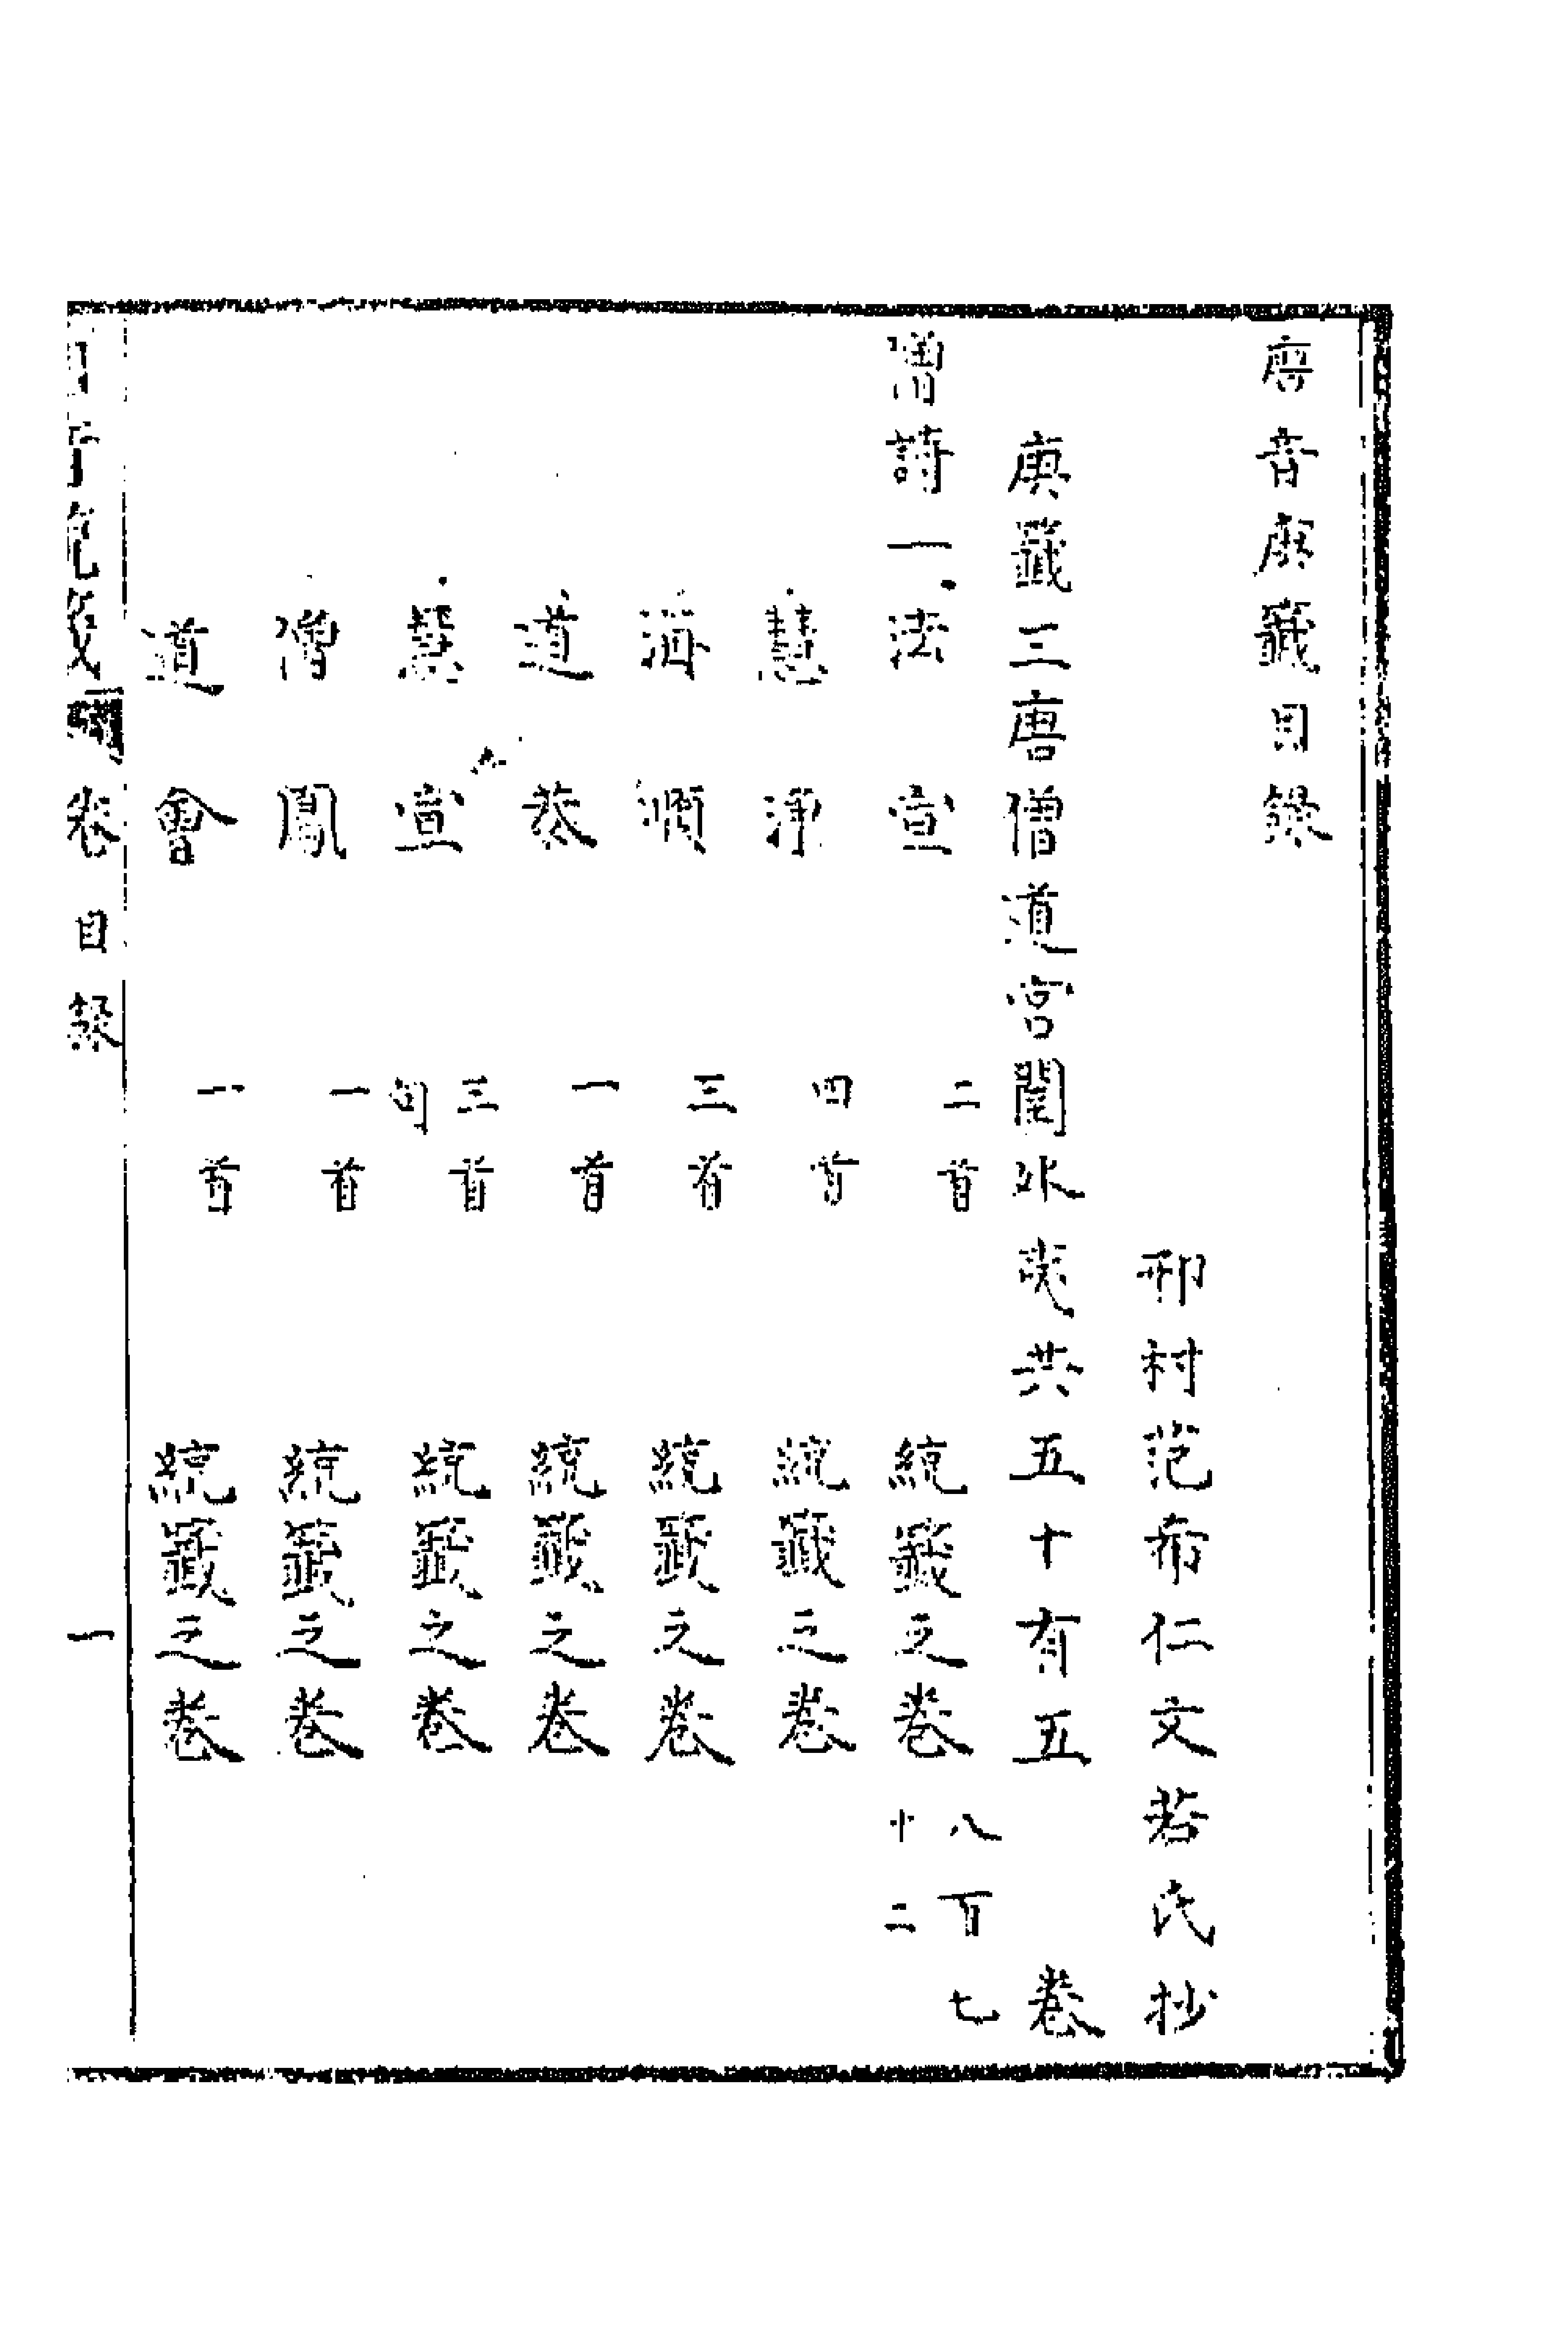 唐音庚籤目録
邗村范希仁文若氏抄
庚籤三唐僧道宮閨外夷共五十有五卷
僧詩一 法宣 二首 統籤之卷八百七十二
慧淨 四首 統籤之卷
海順 三首 統籤之卷
道恭 一首 統籤之卷
慧宣 三首句 統籤之卷
僧鳳 一首 統籤之卷
道會 一首 統籤之卷
卷 目録 一